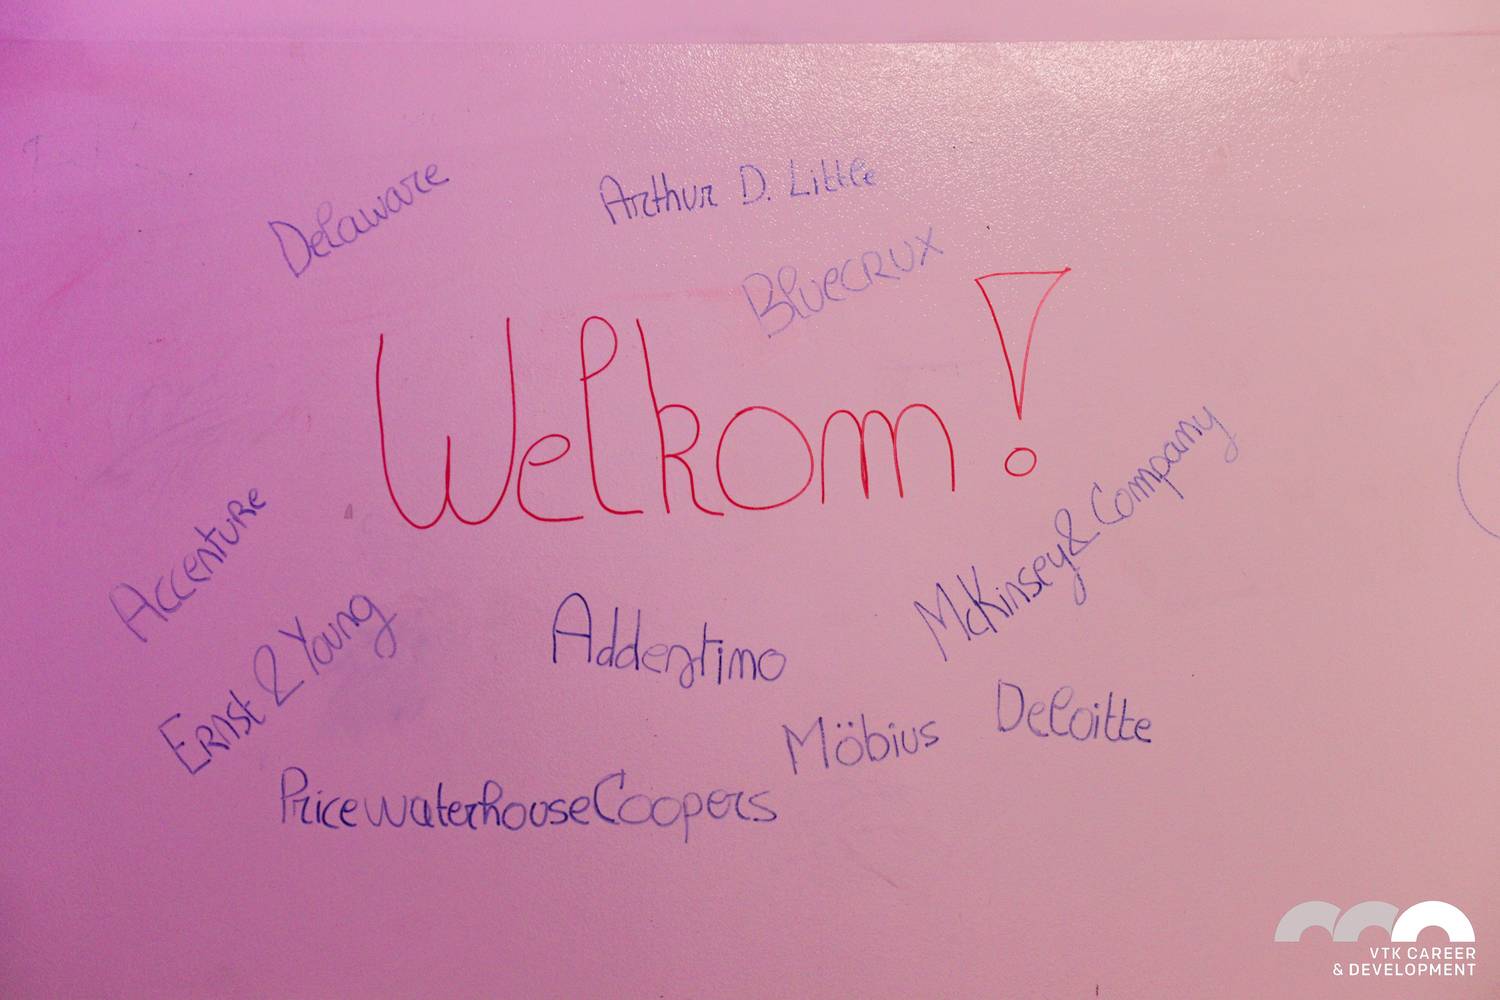 Delaware
Arthur D. Little
Bluecrux
Welkom!
Accenture
McKinsey & Company
Ernst & Young
Addestino
Möbius
Deloitte
PricewaterhouseCoopers
VTK CAREER
& DEVELOPMENT